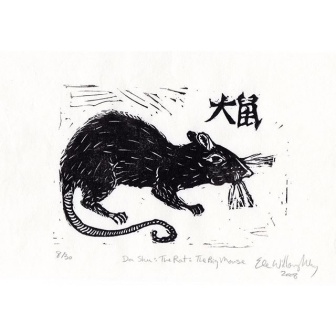 大鼠
8/30 Da Shu : The Rat : The Big Mouse Ele Willoughby
2008